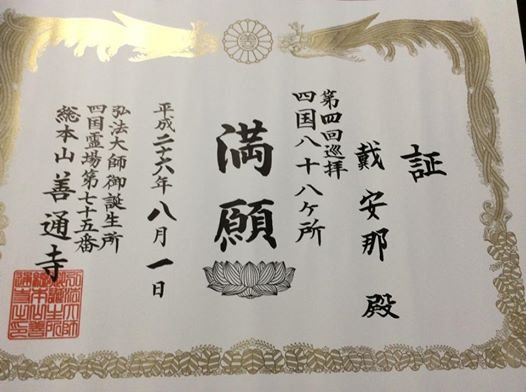 証
戴安那 殿
第四回巡拝
四国八十八ケ所
満願
平成二十六年八月一日
弘法大師御誕生所
四国霊場第七十五番
総本山善通寺